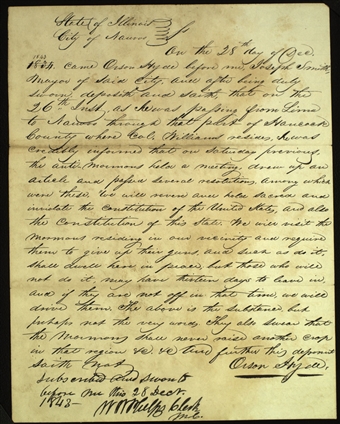 State of Illinois
City of Nauvoo } Ss
On the 28th day of Dec.
1843
1844 came Orson Hyde before me Joseph Smith,
Mayor of Said City, and after being duly
sworn deposeth and saith, that on the
26th Inst, as he was passing from Lima
to Nauvoo through that part of Hancock
County where Col. Williams resides, he was
credibly informed that on Saturday previous,
the anti-Mormons held a meeting drew up an
article and passed several resolutions, among which
were these: We will and take sacred and
inviolate the Constitution of the United States, and also
the Constitution of this State. We will visit the
Mormons residing in our vicinity and require
them to give up their guns, and such as do it,
shall dwell here in peace, but those who will
not do it, may have thirteen days to leave in
and if they are not off in that time, we will
drive them. The above is the substance but
perhaps not the very words. They also swear that
the Mormons shall never raise another crop
in that region &c. &c. And further this deponent
Saith Not
Orson Hyde,
Subscribed and sworn to
before me this 28 Dect.
1843—
W W Phelps Clerk
M.C.